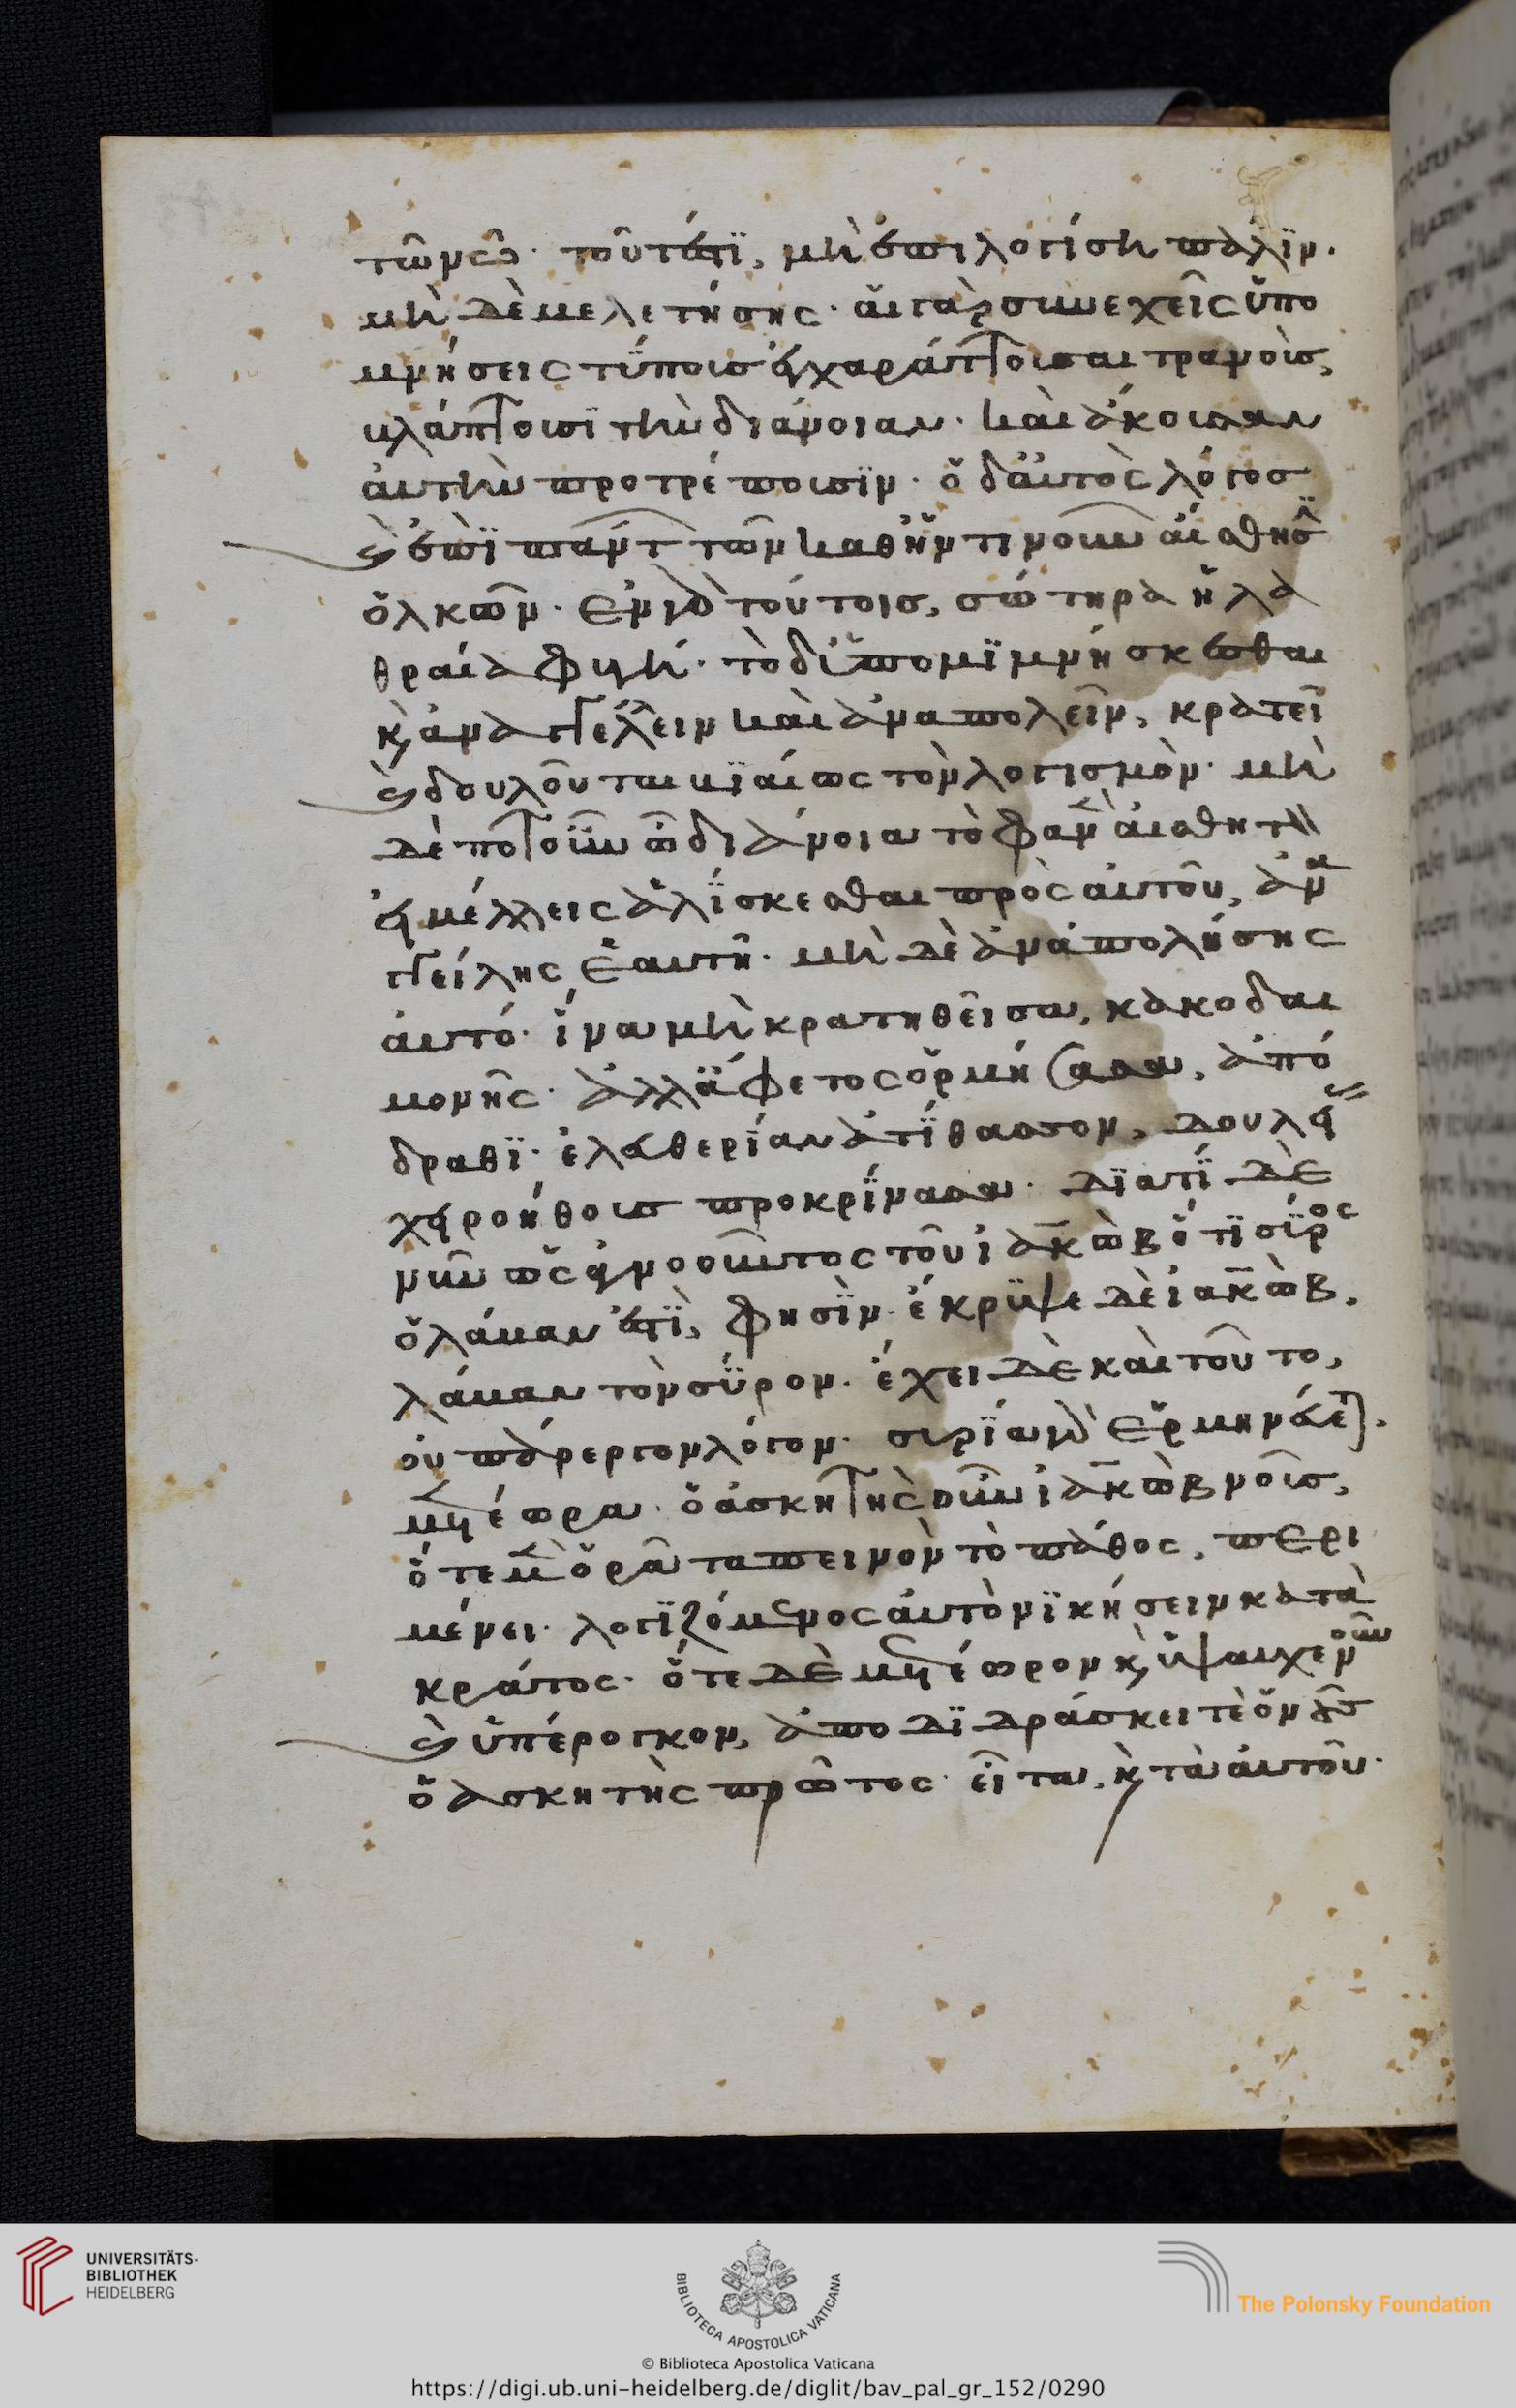 τῶν σῶν· τουτέστι, μὴ ἐπιλογίση πάλιν.
μὴ δὲ μελετήσης· αἱ γὰρ συνεχεῖς ὑπο
μνήσεις τύπους ἐγχαράττουσαι τρανοὺς,
βλάπτουσι τὴν διάνοιαν· καὶ ἄκουσαν
αὐτὴν προτρέπουσιν· ὁ δ' αὐτὸς λόγος
καὶ ἐπὶ πάντ τῶν καθ' ἥντινοῦν αἴσθησ
ὁλκῶν. ἐν γὰρ τούτοις, σώτηρα ἡ λα
θραία φυγή. τὸ δ' ὑπομιμνήσκεσθαι
καὶ ἀναγγέλλειν καὶ ἀναπολεῖν, κρατεῖ
καὶ δουλοῦται βιαίως τὸν λογισμόν· μὴ
δέποτ' οὖν ὦ διάνοια τὸ φανὲν αἰσθητὸν
εἰ μέλλεις ἁλίσκεσθαι πρὸς αὐτοῦ, ἀνα
γγείλης ἑαυτῆ· μὴ δὲ ἀναπολήσης
αὐτό· ἵνα μὴ κρατηθεῖσα, κακοδαι
μονῆς· ἀλλ' ἄφετος ὁρμήσασα, ἀπό
δραθι· ἐλευθερίαν ἀτίθασσον, δουλεί
χειροήθους προκρίνασα. διατί δὲ
νῦν ὡς ἀγνοοῦντος τοῦ ἰακὼβ ὅτι σύρος
ὁ λάβαν ἐστὶ, φησὶν· ἔκρυψε δὲ ἰακὼβ,
λάβαν τὸν σύρον. ἔχει δὲ καὶ τοῦτο,
οὐ πάρεργον λόγον· συρία γὰρ ἑρμηνεύεται.
μετέωρα. ὁ ἀσκητὴς οὖν ἰακὼβ νοῦς,
ὅτε μὲν ὁρᾶ ταπεινὸν τὸ πάθος, περι
μένει· λογιζόμενος αὐτὸ νικήσειν κατὰ
κράτος· ὅτε δὲ μετέωρον καὶ ὑψαυχενοῦν
καὶ ὑπέρογκον, ἀποδιδράσκει τὲ ὁ νοῦς
ὁ ἀσκητὴς πρῶτος· εἶτα, καὶ τὰ αὐτοῦ·
UNIVERSITÄTS-
BIBLIOTHEK
HEIDELBERG
BIBLIOTECA APOSTOLICA VATICANA
The Polonsky Foundation
© Biblioteca Apostolica Vaticana
https://digi.ub.uni-heidelberg.de/diglit/bav_pal_gr_152/0290